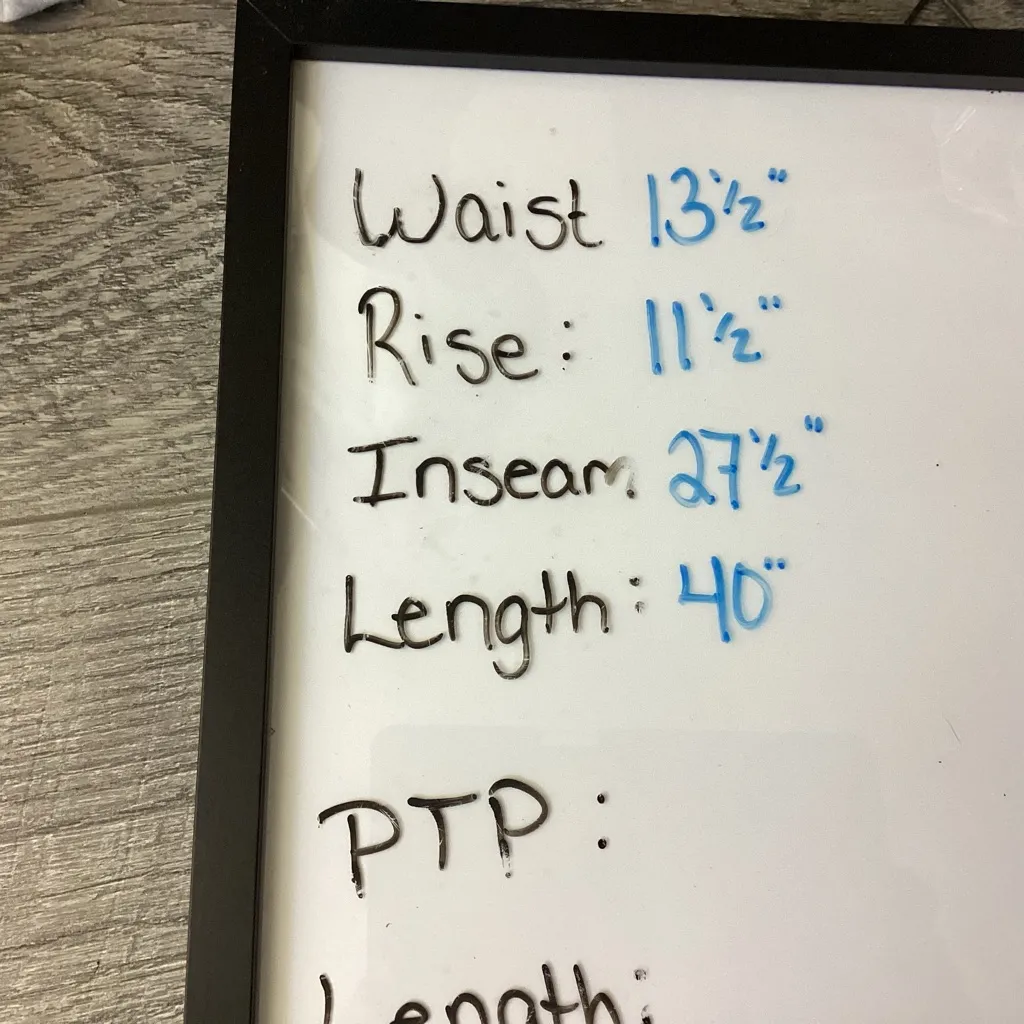 Waist 13 1/2"
Rise: 11 1/2"
Inseam 27 1/2"
Length: 40"
PTP:
Length: